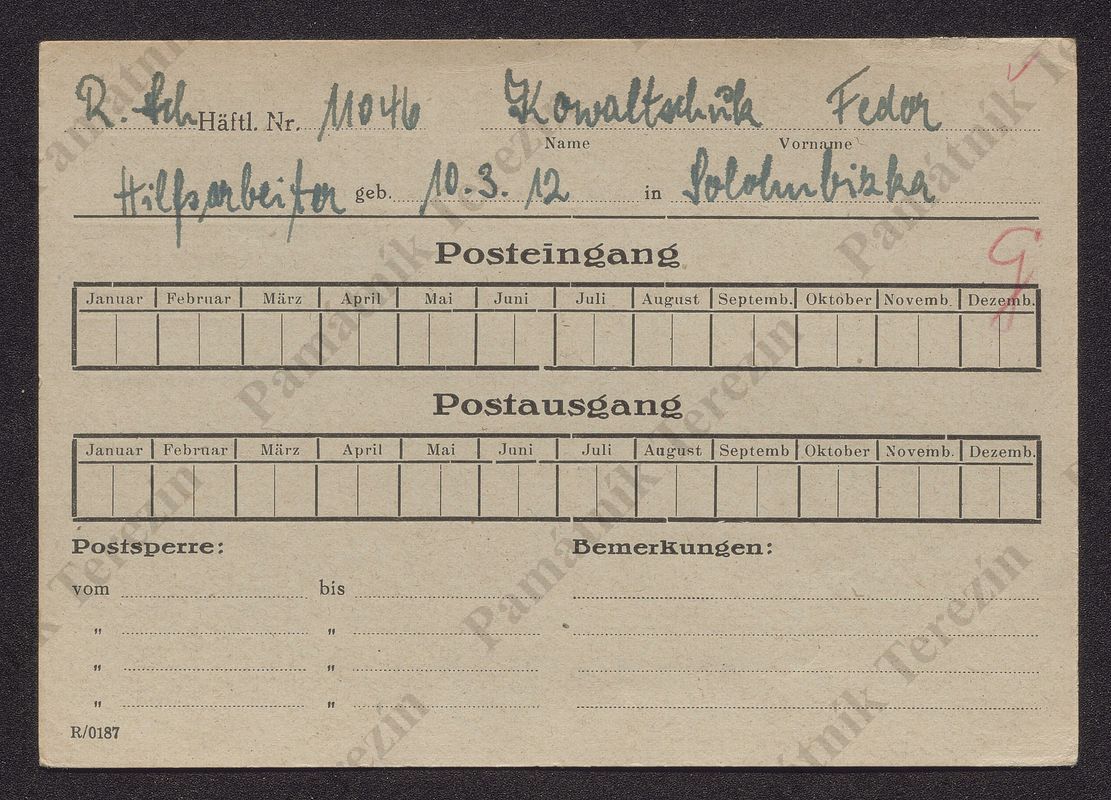 R. Sch Häftl. Nr. 11046 Kowaltschuk Fedor
Name Vorname
Hilfsarbeiter geb. 10. 3. 12 in Solohubizka
Posteingang
Januar Februar März April Mai Juni Juli August Septemb. Oktober Novemb. Dezemb.
Postausgang
Januar Februar März April Mai Juni Juli August Septemb Oktober Novemb. Dezemb.
Postsperre: Bemerkungen:
vom bis
" "
" "
" "
R/0187
Památník Terezín